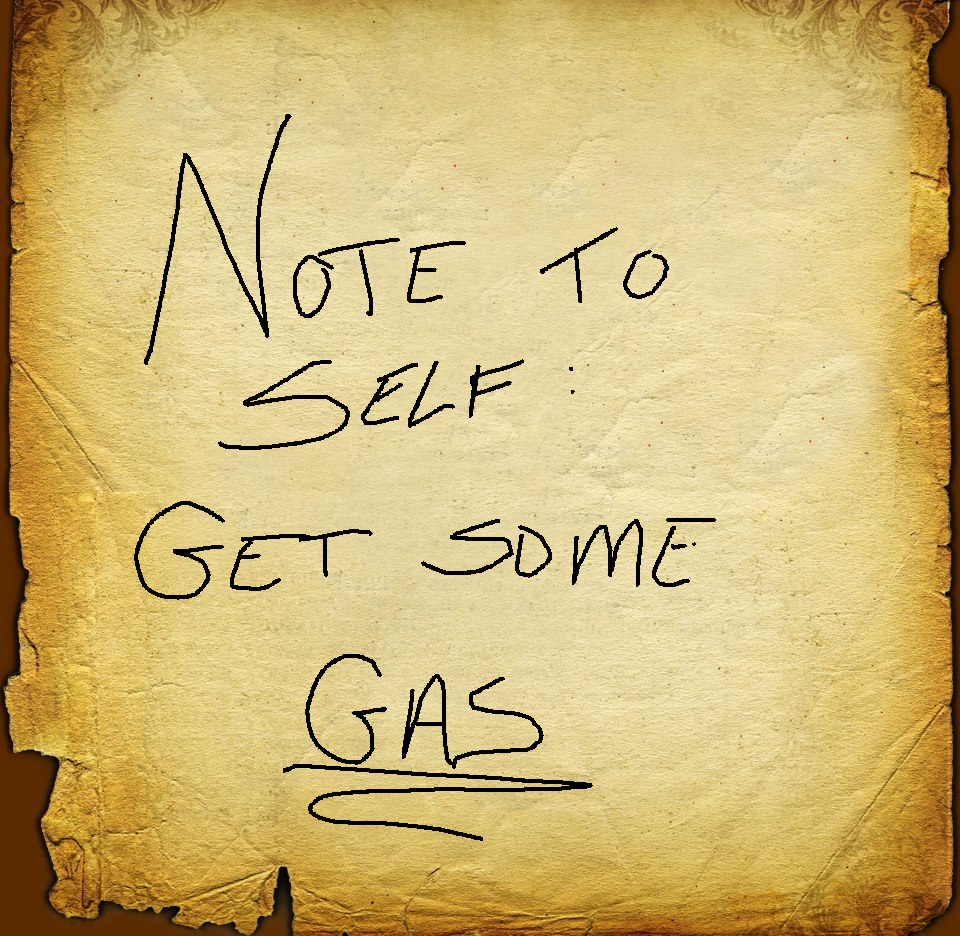 NOTE TO
SELF:
GET SOME
GAS